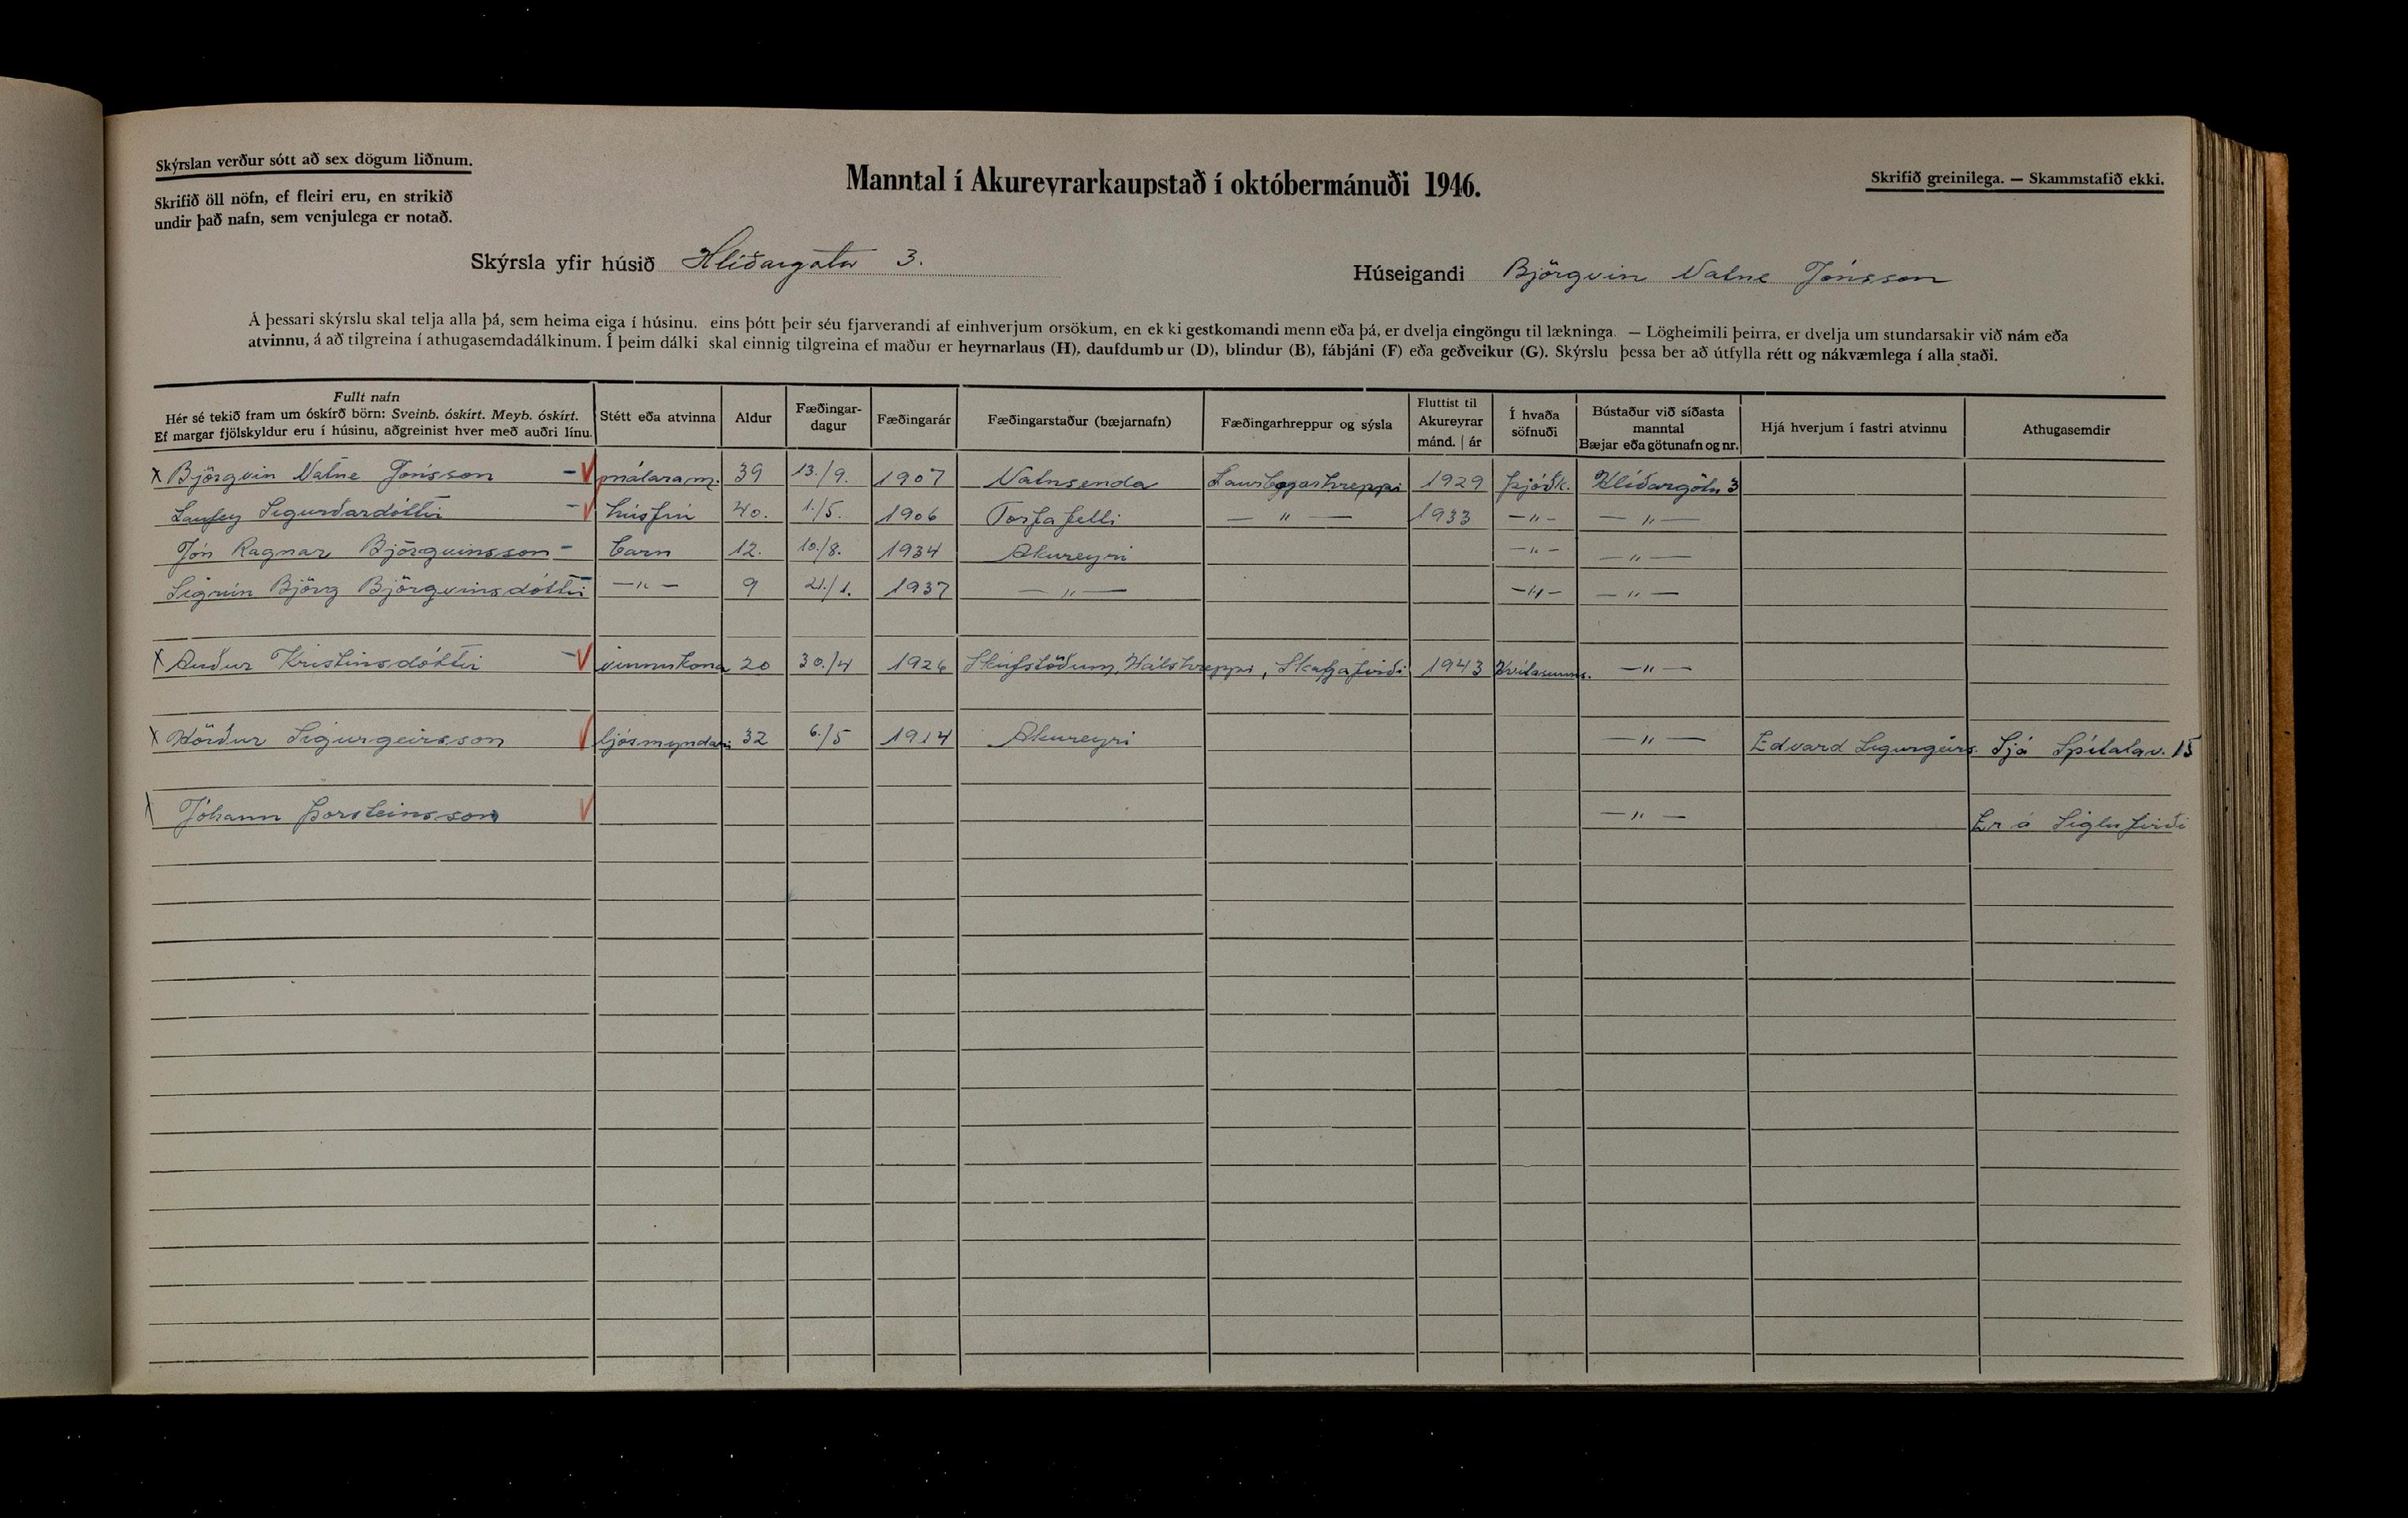 Skýrslan verður sótt að sex dögum liðnum.
Skrifið öll nöfn, ef fleiri eru, en strikið
undir það nafn, sem venjulega er notað.
Manntal í Akureyrarkaupstað í októbermánuði 1946.
Skrifið greinilega. — Skammstafið ekki.
Skýrsla yfir húsið Hlíðargata 3.
Húseigandi Björgvin Valne Jónsson
Á þessari skýrslu skal telja alla þá, sem heima eiga í húsinu, eins þótt þeir séu fjarverandi af einhverjum orsökum, en ek ki gestkomandi menn eða þá, er dvelja eingöngu til lækninga. — Lögheimili þeirra, er dvelja um stundarsakir við nám eða
atvinnu, á að tilgreina í athugasemdadálkinum. Í þeim dálki skal einnig tilgreina ef maður er heyrnarlaus (H), daufdumb ur (D), blindur (B), fábjáni (F) eða geðveikur (G). Skýrslu þessa ber að útfylla rétt og nákvæmlega í alla staði.
Fullt nafn
Hér sé tekið fram um óskírð börn: Sveinb. óskírt. Meyb. óskírt.
Ef margar fjölskyldur eru í húsinu, aðgreinist hver með auðri línu.
Stétt eða atvinna
Aldur
Fæðingar-
dagur
Fæðingarár
Fæðingarstaður (bæjarnafn)
Fæðingarhreppur og sýsla
Fluttist til
Akureyrar
mánd. | ár
Í hvaða
söfnuði
Bústaður við síðasta
manntal
Bæjar eða götunafn og nr.
Hjá hverjum í fastri atvinnu
Athugasemdir
X Björgvin Valne Jónsson - V málaram. 39 13./9. 1907 Vatnsenda Saurbæjarhreppi 1929 Þjóðk. Hlíðargötu 3
Laufey Sigurðardóttir - V húsfrú 40. 1./5. 1906 Torfafelli — " — 1933 - " - — " —
Jón Ragnar Björgvinsson - barn 12. 10/8. 1934 Akureyri - " - — " —
Sigrún Björg Björgvinsdóttir - — " — 9 21./1. 1937 — " — - " - — " —
X Auður Kristinsdóttir - V vinnukona 20 30./4 1926 Skúfstöðum, Hólahreppi, Skagafirði 1943 Hvítasunns. — " —
X Hörður Sigurgeirsson V ljósmyndari 32 6./5 1914 Akureyri — " — Edvard Sigurgeirs. Sjá Spítalav. 15
X Jóhann Þorsteinsson V — " — Er á Siglufirði